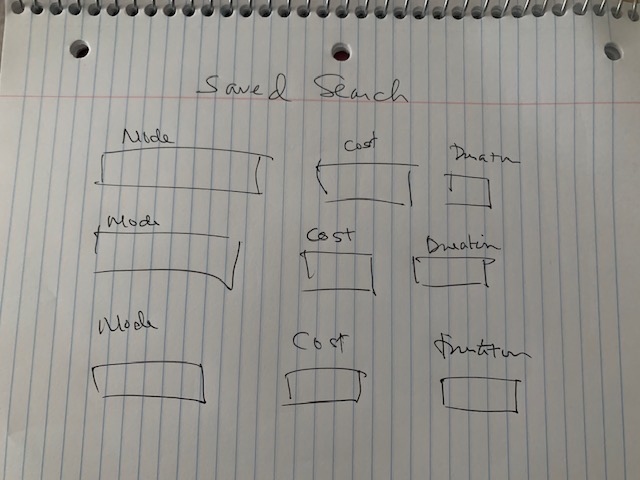 Saved Search
Mode Cost Duratn
Mode Cost Duration
Mode Cost Duration